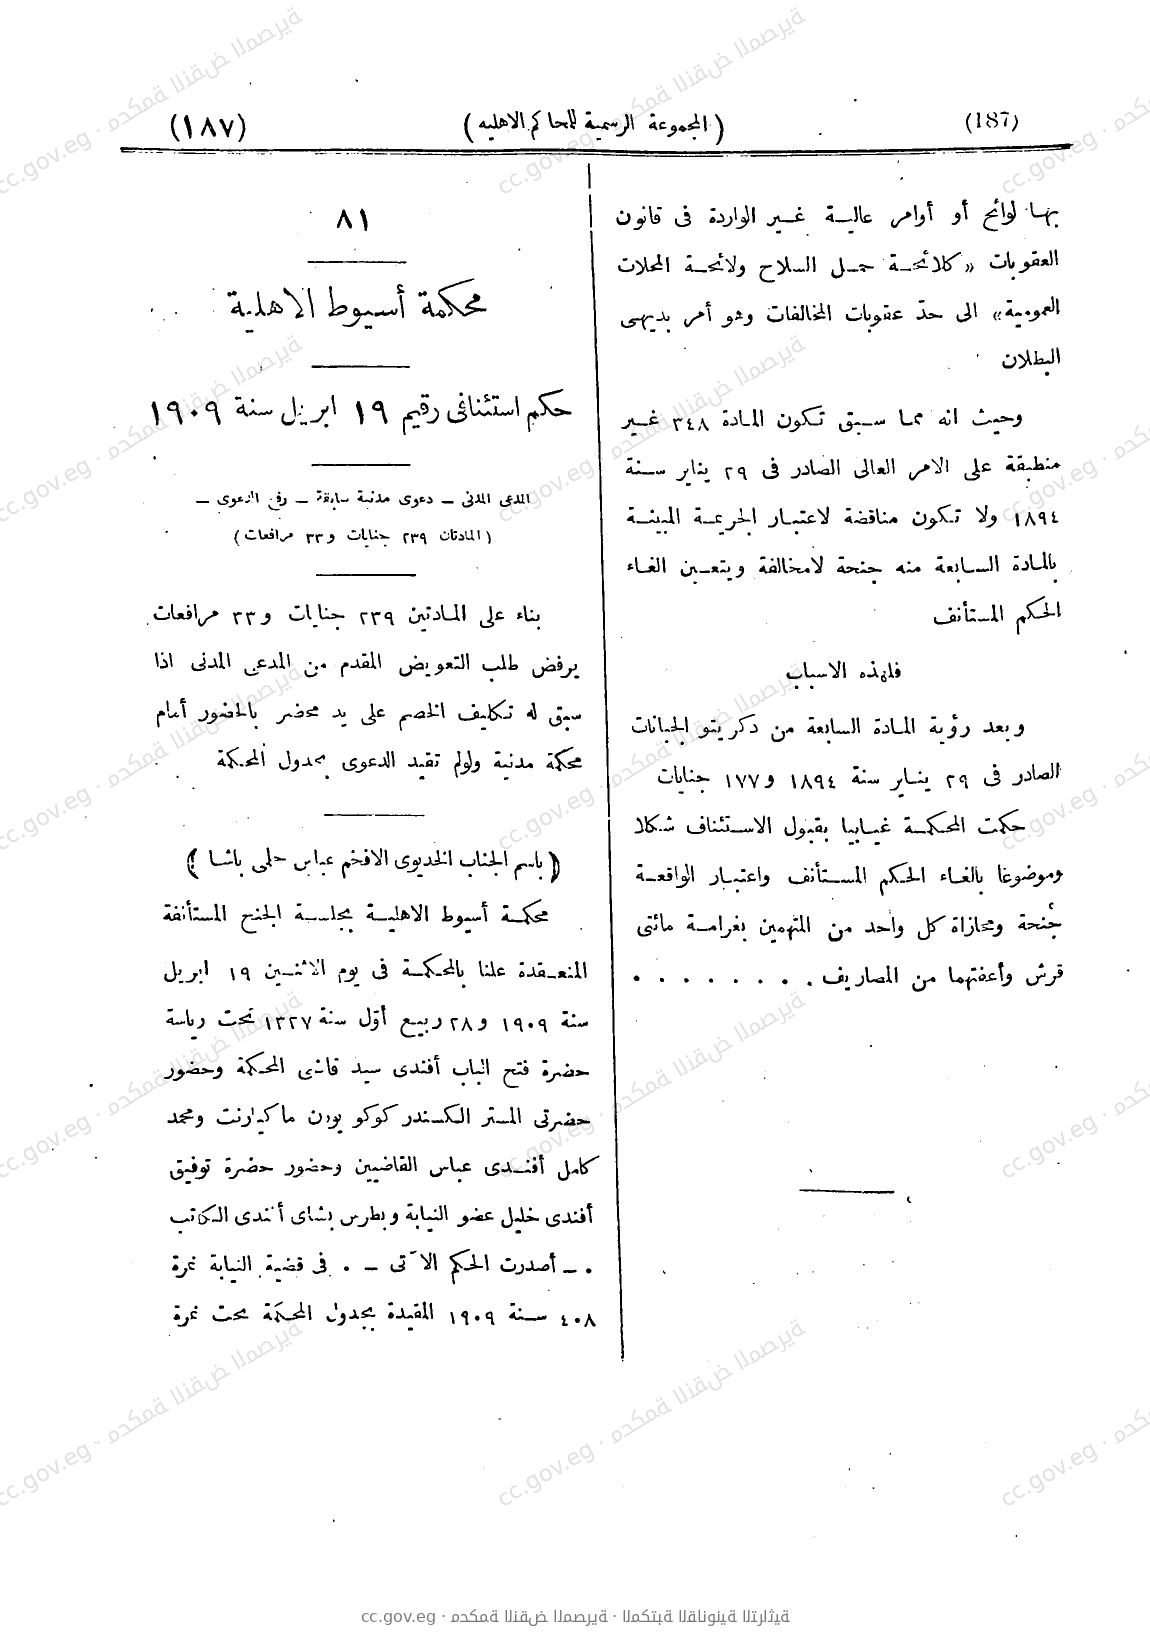 (187)
(المجموعة الرسمية للمحاكم الاهليه)
(١٨٧)
بها لوائح أو أوامر عاليـة غـير الواردة فى قانون
العقوبات «كلائحـة حمـل السلاح ولائحـة المحلات
العمومية» الى حدّ عقوبات المخالفات وهو أمر بديهى
البطلان
وحيث انه مما سـبق تكون المادة ٣٤٨ غـير
منطبقة على الامر العالى الصادر فى ٢٩ يناير سـنة
١٨٩٤ ولا تكون مناقضة لاعتبـار الجريمـة المبينـة
بالمادة السـابعة منه جنحة لامخالفة ويتعـين الغـاء
الحكم المستأنف
فلهذه الاسباب
وبعد رؤية المـادة السابعة من دكريتو الجبانات
الصادر فى ٢٩ ينـاير سنة ١٨٩٤ و١٧٧ جنايات
حكمت المحكمـة غيـابيا بقبول الاسـتئناف شـكلا
وموضوعا بالغـاء الحـكم المسـتأنف واعتبـار الواقعـة
جُنحة ومجازاة كل واحد من المتهمين بغرامـة مائتى
قرش وأعفتهما من المصاريف . . . . . . . .
٨١
محكمة أسيوط الاهلية
حكم استئنافى رقيم ١٩ ابريل سنة ١٩٠٩
المدعى المدنى ــ دعوى مدنية سابقة ــ رفع الدعوى ــ
(المادتان ٢٣٩ جنايات و٣٣ مرافعات)
بناء على المـادتين ٢٣٩ جنايات و٣٣ مرافعات
يرفض طلب التعويض المقدم من المدعى المدنى اذا
سبق له تكليف الخصم على يد محضر بالحضور أمام
محكمة مدنية ولولم تقيد الدعوى بجدول المحكمة
(باسم الجناب الخديوى الافخم عباس حلمى باشا)
محكمـة أسيوط الاهليـة بجلسـة الجنح المستأنفة
المنعـقدة علنا بالمحكمـة فى يوم الاثنـين ١٩ ابريل
سنة ١٩٠٩ و٢٨ ربيع أوّل سنة ١٣٢٧ تحت رياسة
حضرة فتح الباب أفندى سيد قاضى المحكمة وحضور
حضرتى المستر الكسندر كوكو بورن ماكبارنت ومحمد
كامل أفنـدى عباس القاضيين وحضور حضرة توفيق
أفندى خليل عضو النيابة وبطرس بشاى أفندى الكاتب
. ــ أصدرت الحكم الآتى ــ . فى قضية النيابة نمرة
٤٠٨ سـنة ١٩٠٩ المقيدة بجدول المحكمة تحت نمرة
cc.gov.eg · محكمة النقض المصرية · المكتبة القانونية التراثية